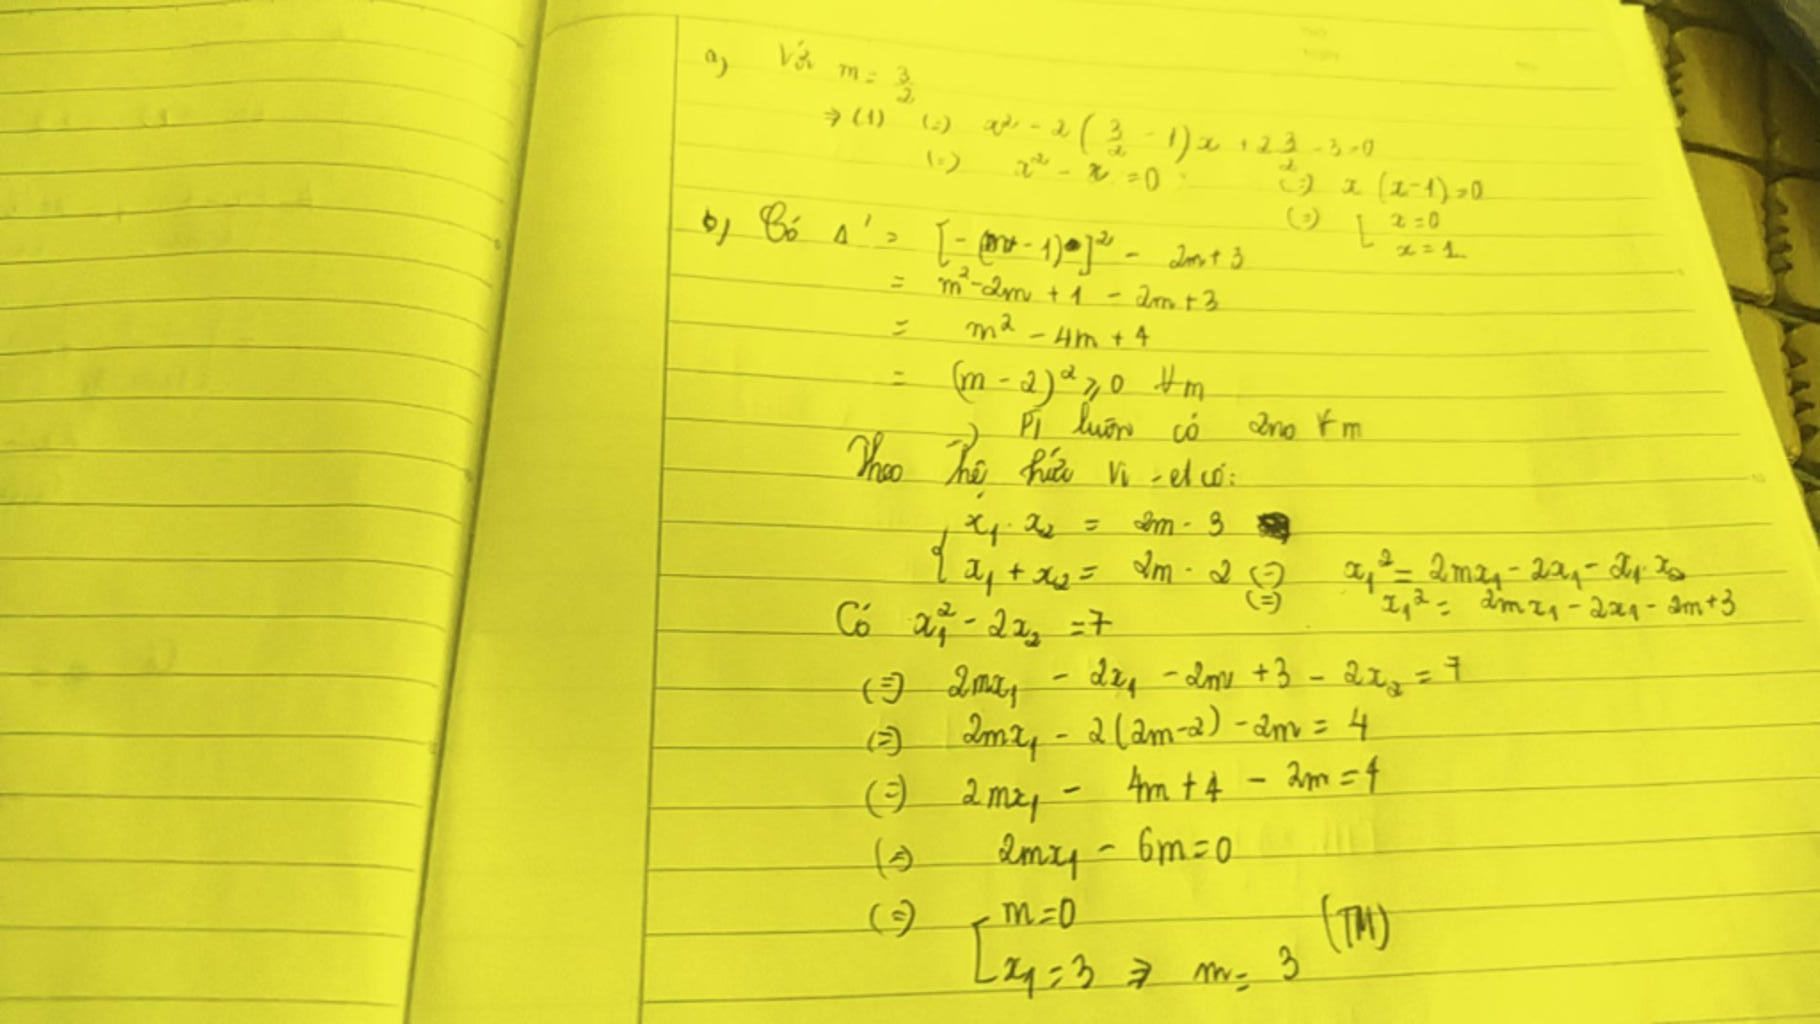 a) Với m = 3/2
⇒ (1) (=) x² - 2 ( 3/2 - 1) x + 2 3/2 - 3 = 0
(=) x² - x = 0 (=) x (x-1) = 0
(=) [ x = 0
x = 1
b) Có Δ' = [- (m - 1)]² - 2m + 3
= m² - 2m + 1 - 2m + 3
= m² - 4m + 4
= (m - 2)² ⩾ 0 ∀ m
=) PT luôn có 2no ∀ m
Theo hệ thức Vi - et có:
{ x₁ . x₂ = 2m - 3
x₁ + x₂ = 2m - 2 (=) x₁² = 2mx₁ - 2x₁ - x₁ . x₂
(=) x₁² = 2mx₁ - 2x₁ - 2m + 3
Có x₁² - 2x₂ = 7
(=) 2mx₁ - 2x₁ - 2m + 3 - 2x₂ = 7
(=) 2mx₁ - 2(2m-2) - 2m = 4
(=) 2mx₁ - 4m + 4 - 2m = 4
(=) 2mx₁ - 6m = 0
(=) [ m = 0
x₁ = 3 ⇒ m = 3 (TM)